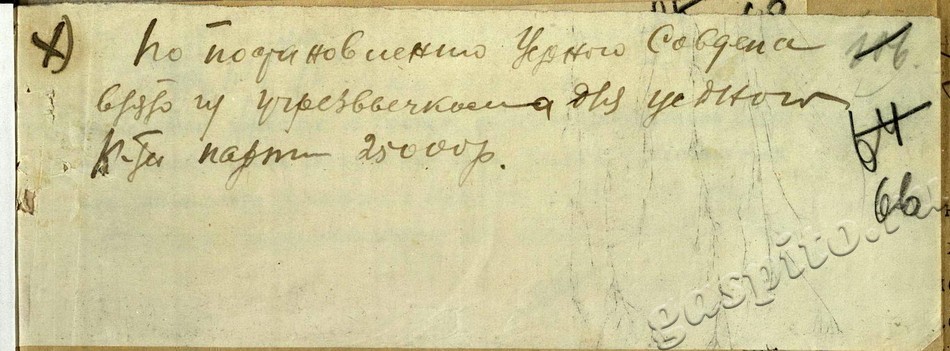 х) По постановлению Уездного Совдепа 106.
взято из учрезвычкома для уездного 64
К-та партии 25000р. 66
gaspito.r